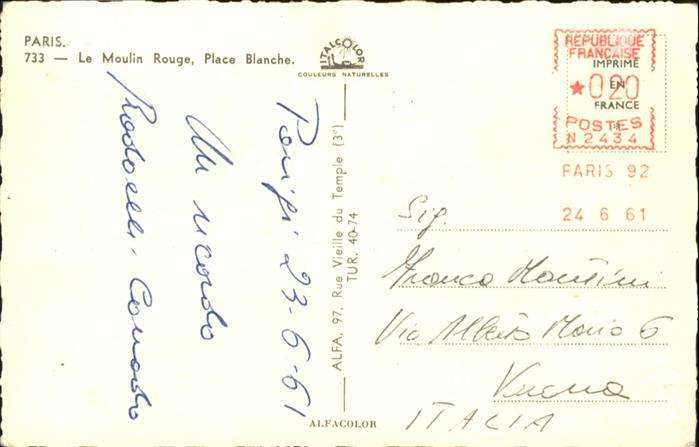 PARIS.
733 — Le Moulin Rouge, Place Blanche.
ITALCOLOR
COULEURS NATURELLES
REPUBLIQUE
FRANÇAISE
IMPRIMÉ
0,20
EN
FRANCE
POSTES
N 2434
PARIS 92
24 6 61
Parigi 23-6-61
Un ricordo
ALFA, 97, Rue Vieille du Temple (3e)
TUR. 40-74
Sig.
Franco Mantini
Via Alberto Mario 6
ITALIA
ALFACOLOR